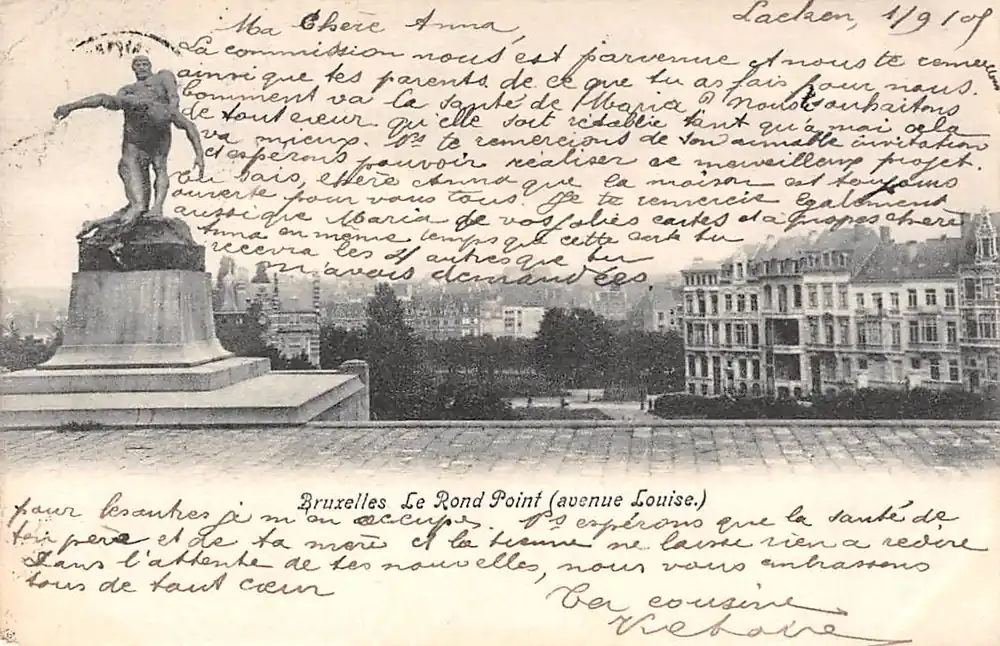 Ma Chère Anna,
Lacken, 1/9/05
La commission nous est parvenue et nous te remer
ainsi que tes parents de ce que tu as fais pour nous.
Comment va la santé de Maria? Nous souhaitons
de tout cœur qu'elle soit rétablie tant qu'à moi cela
va mieux. Ns te remercions de ton aimable invitation
et espérons pouvoir réaliser ce merveilleux projet.
Tu sais, chère Anna que la maison est toujours
ouverte pour vous tous. Je te remercie également
aussi que Maria de vos jolies cartes et à propos chère
Anna en même temps que cette carte tu
recevra les 4 autres que tu
m'avais demandées
Bruxelles Le Rond Point (avenue Louise.)
pour les autres je m'en occupe. Ns espérons que la santé de
ton père et de ta mère et la tienne ne laisse rien a redire
Dans l'attente de tes nouvelles, nous vous embrassons
tous de tout cœur
Ta cousine
Victorine